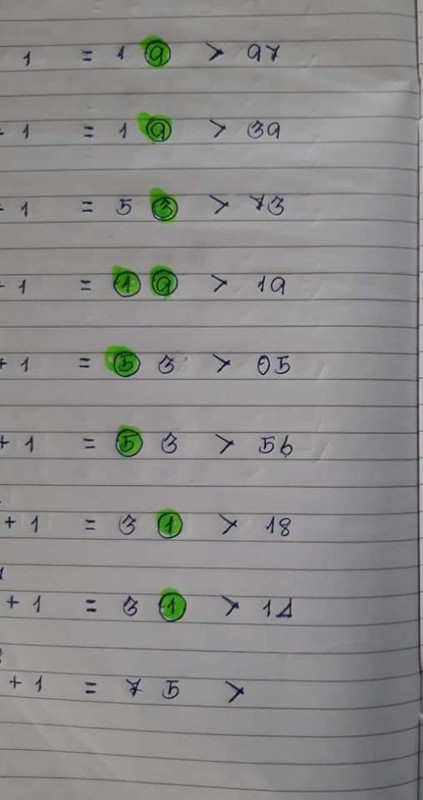 1 = 1 9 > 97
+ 1 = 1 9 > 39
+ 1 = 5 3 > 73
+ 1 = 1 9 > 19
+ 1 = 5 3 > 05
+ 1 = 5 3 > 56
+ 1 = 3 1 > 18
+ 1 = 3 1 > 14
+ 1 = 7 5 >